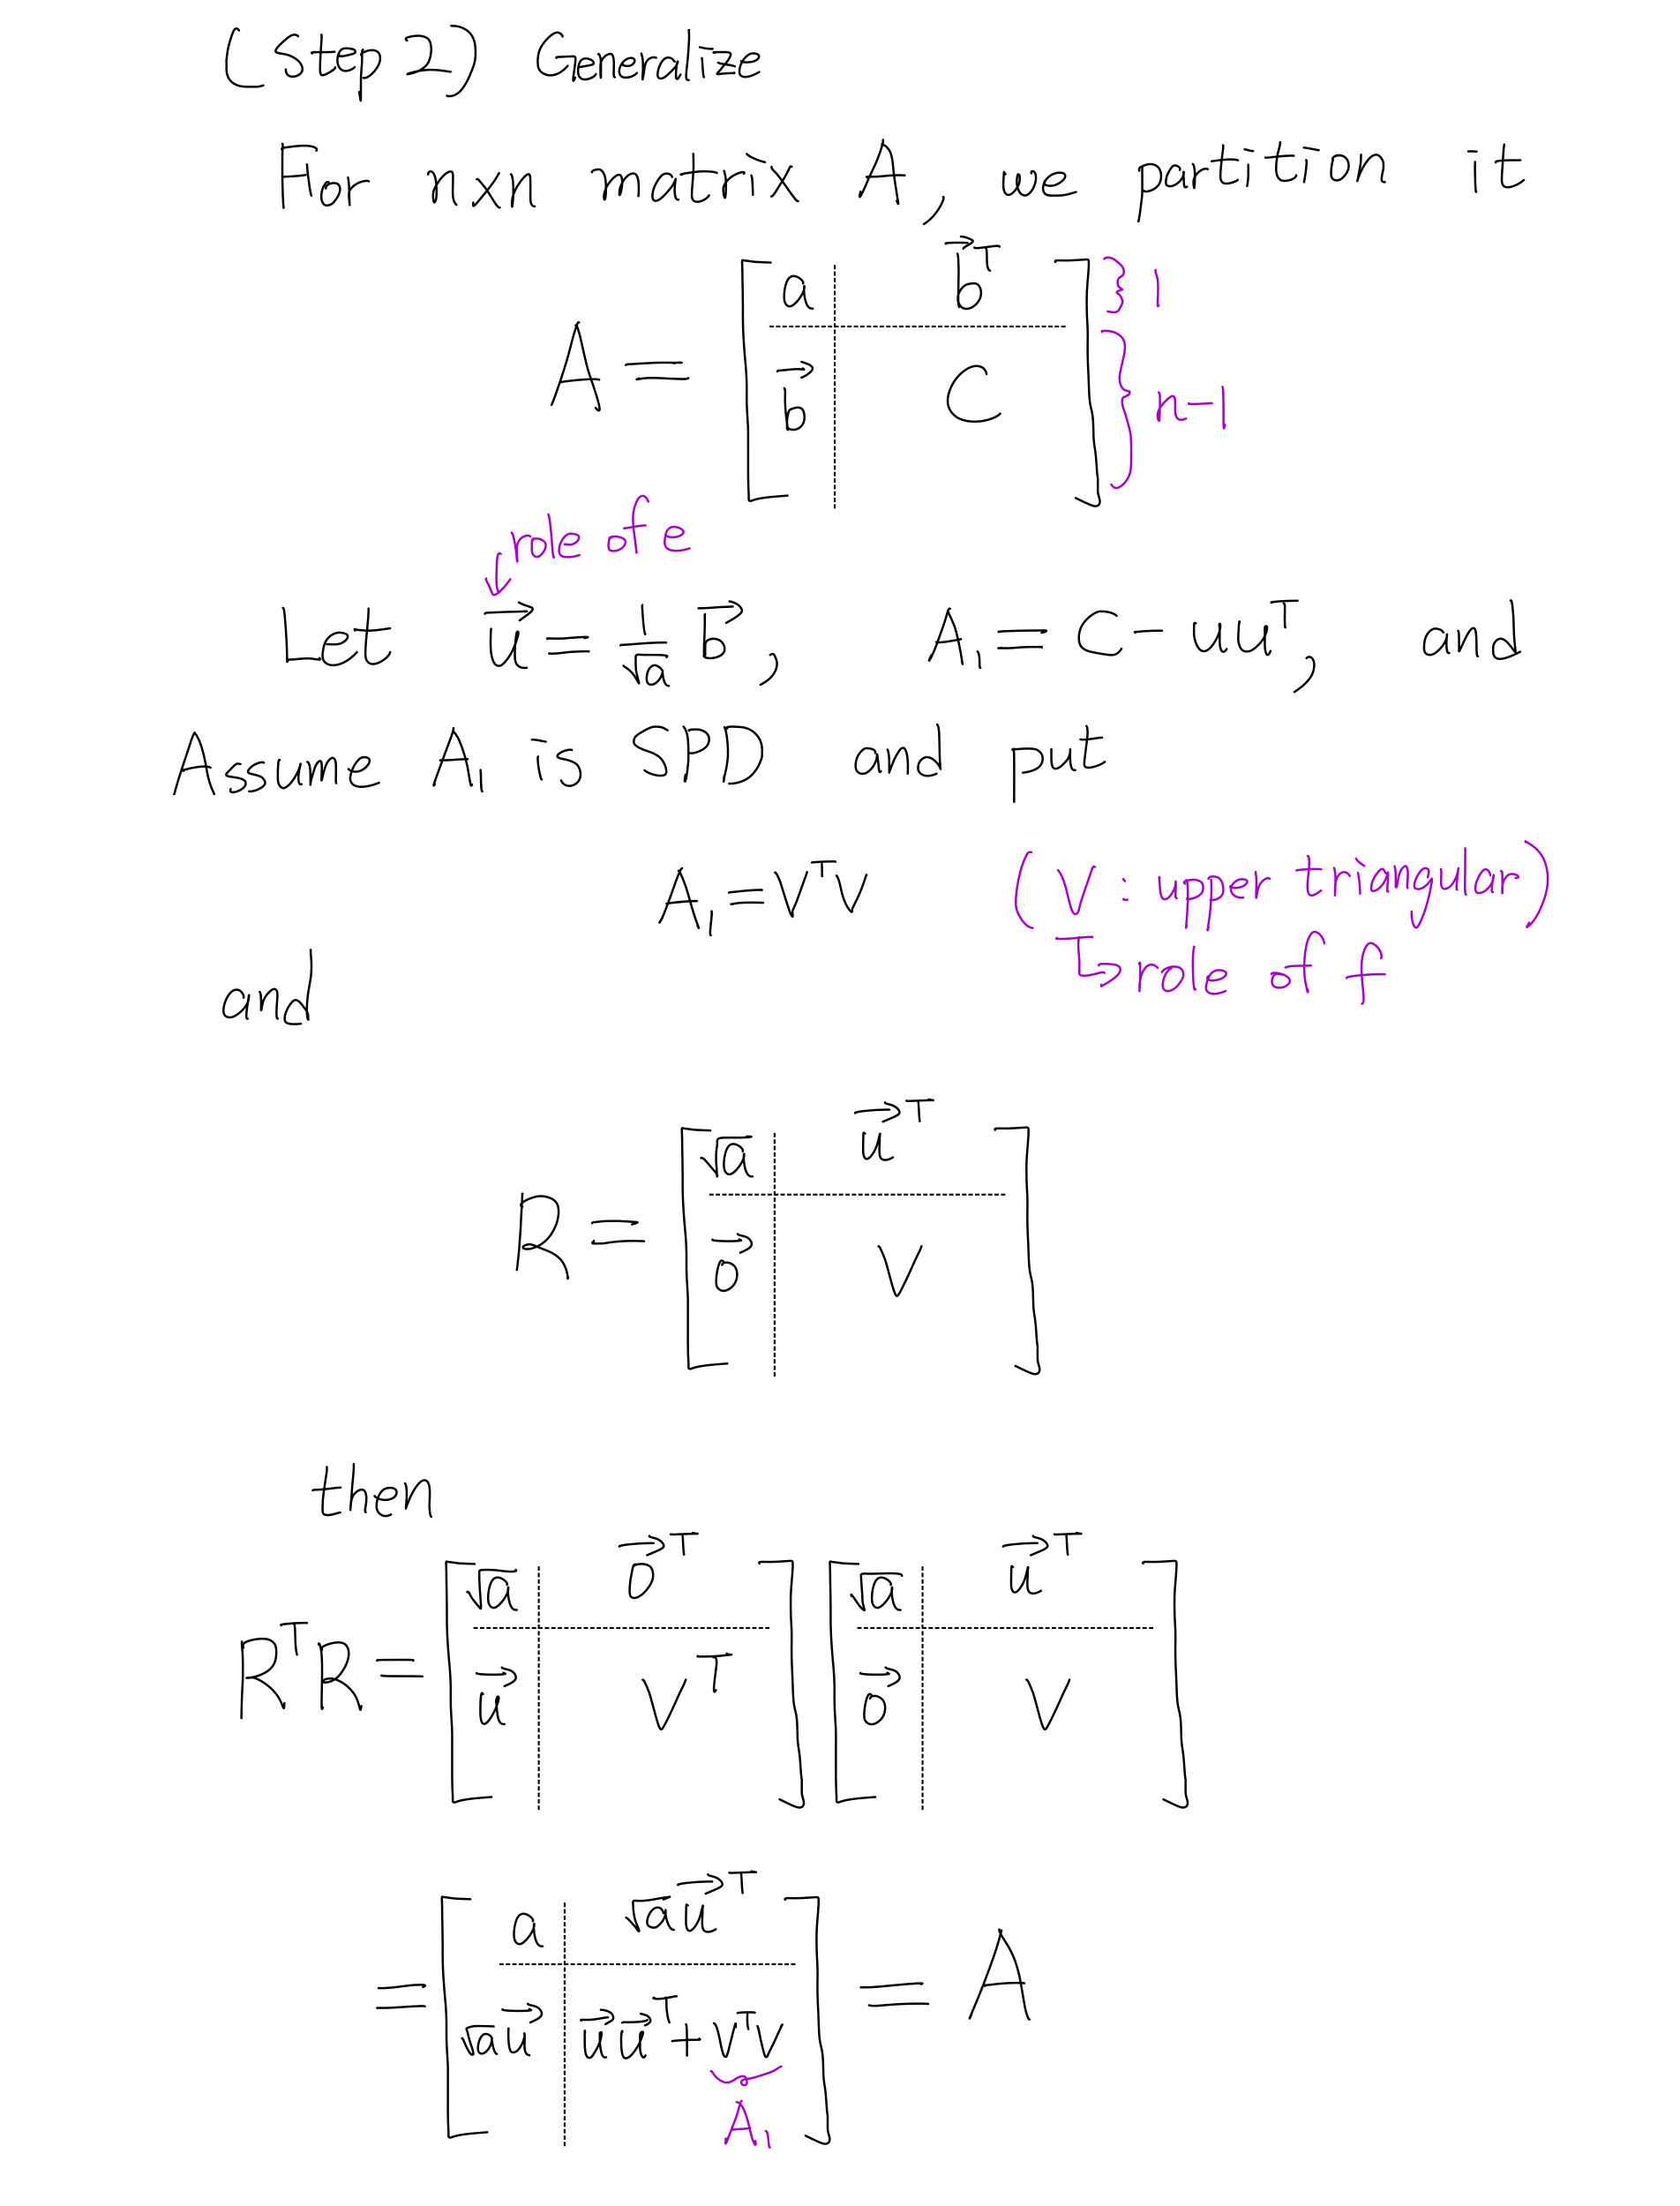 (Step 2) Generalize
For n×n matrix A, we partition it
A = [ a | b⃗ᵀ ; b⃗ | C ] } 1 } n-1
↓ role of e
Let u⃗ = 1/√a b⃗, A₁ = C - uuᵀ, and
Assume A₁ is SPD and put
A₁ = VᵀV (V : upper triangular)
↳ role of f
and
R = [ √a | u⃗ᵀ ; 0⃗ | V ]
then
RᵀR = [ √a | 0⃗ᵀ ; u⃗ | Vᵀ ] [ √a | u⃗ᵀ ; 0⃗ | V ]
= [ a | √a u⃗ᵀ ; √a u⃗ | u⃗u⃗ᵀ + VᵀV ] = A
A₁